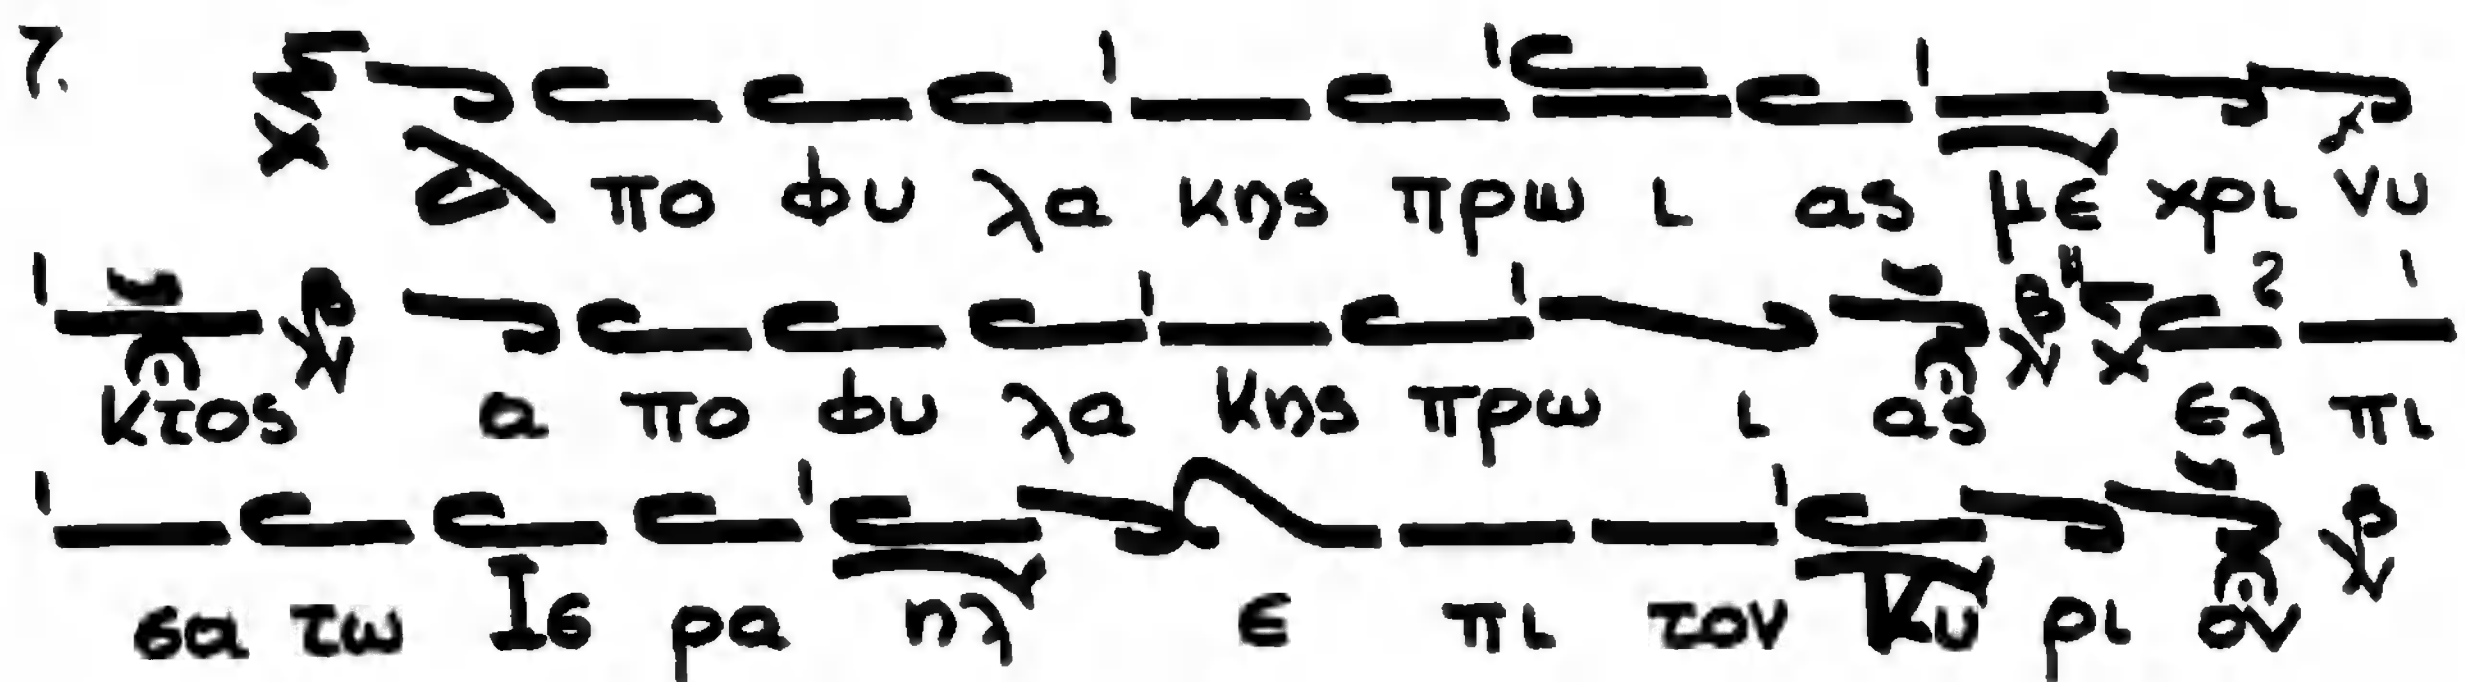 7. α πο φυ λα κης πρω ι ας με χρι νυ
κτος α πο φυ λα κης πρω ι ας ελ πι
σα τω Ισ ρα ηλ ε πι τον Κυ ρι ον